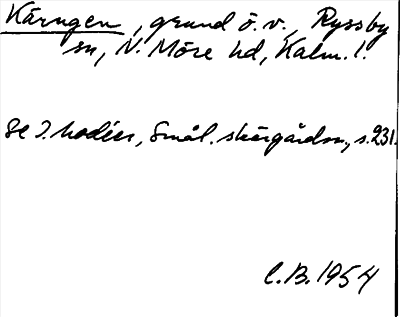 Kärngen, grund ö.v., Ryssby
sn, N. Möre hd, Kalm. l.
Se I. Modéer, Smål. skärgårdsn., s. 231.
C.B. 1954